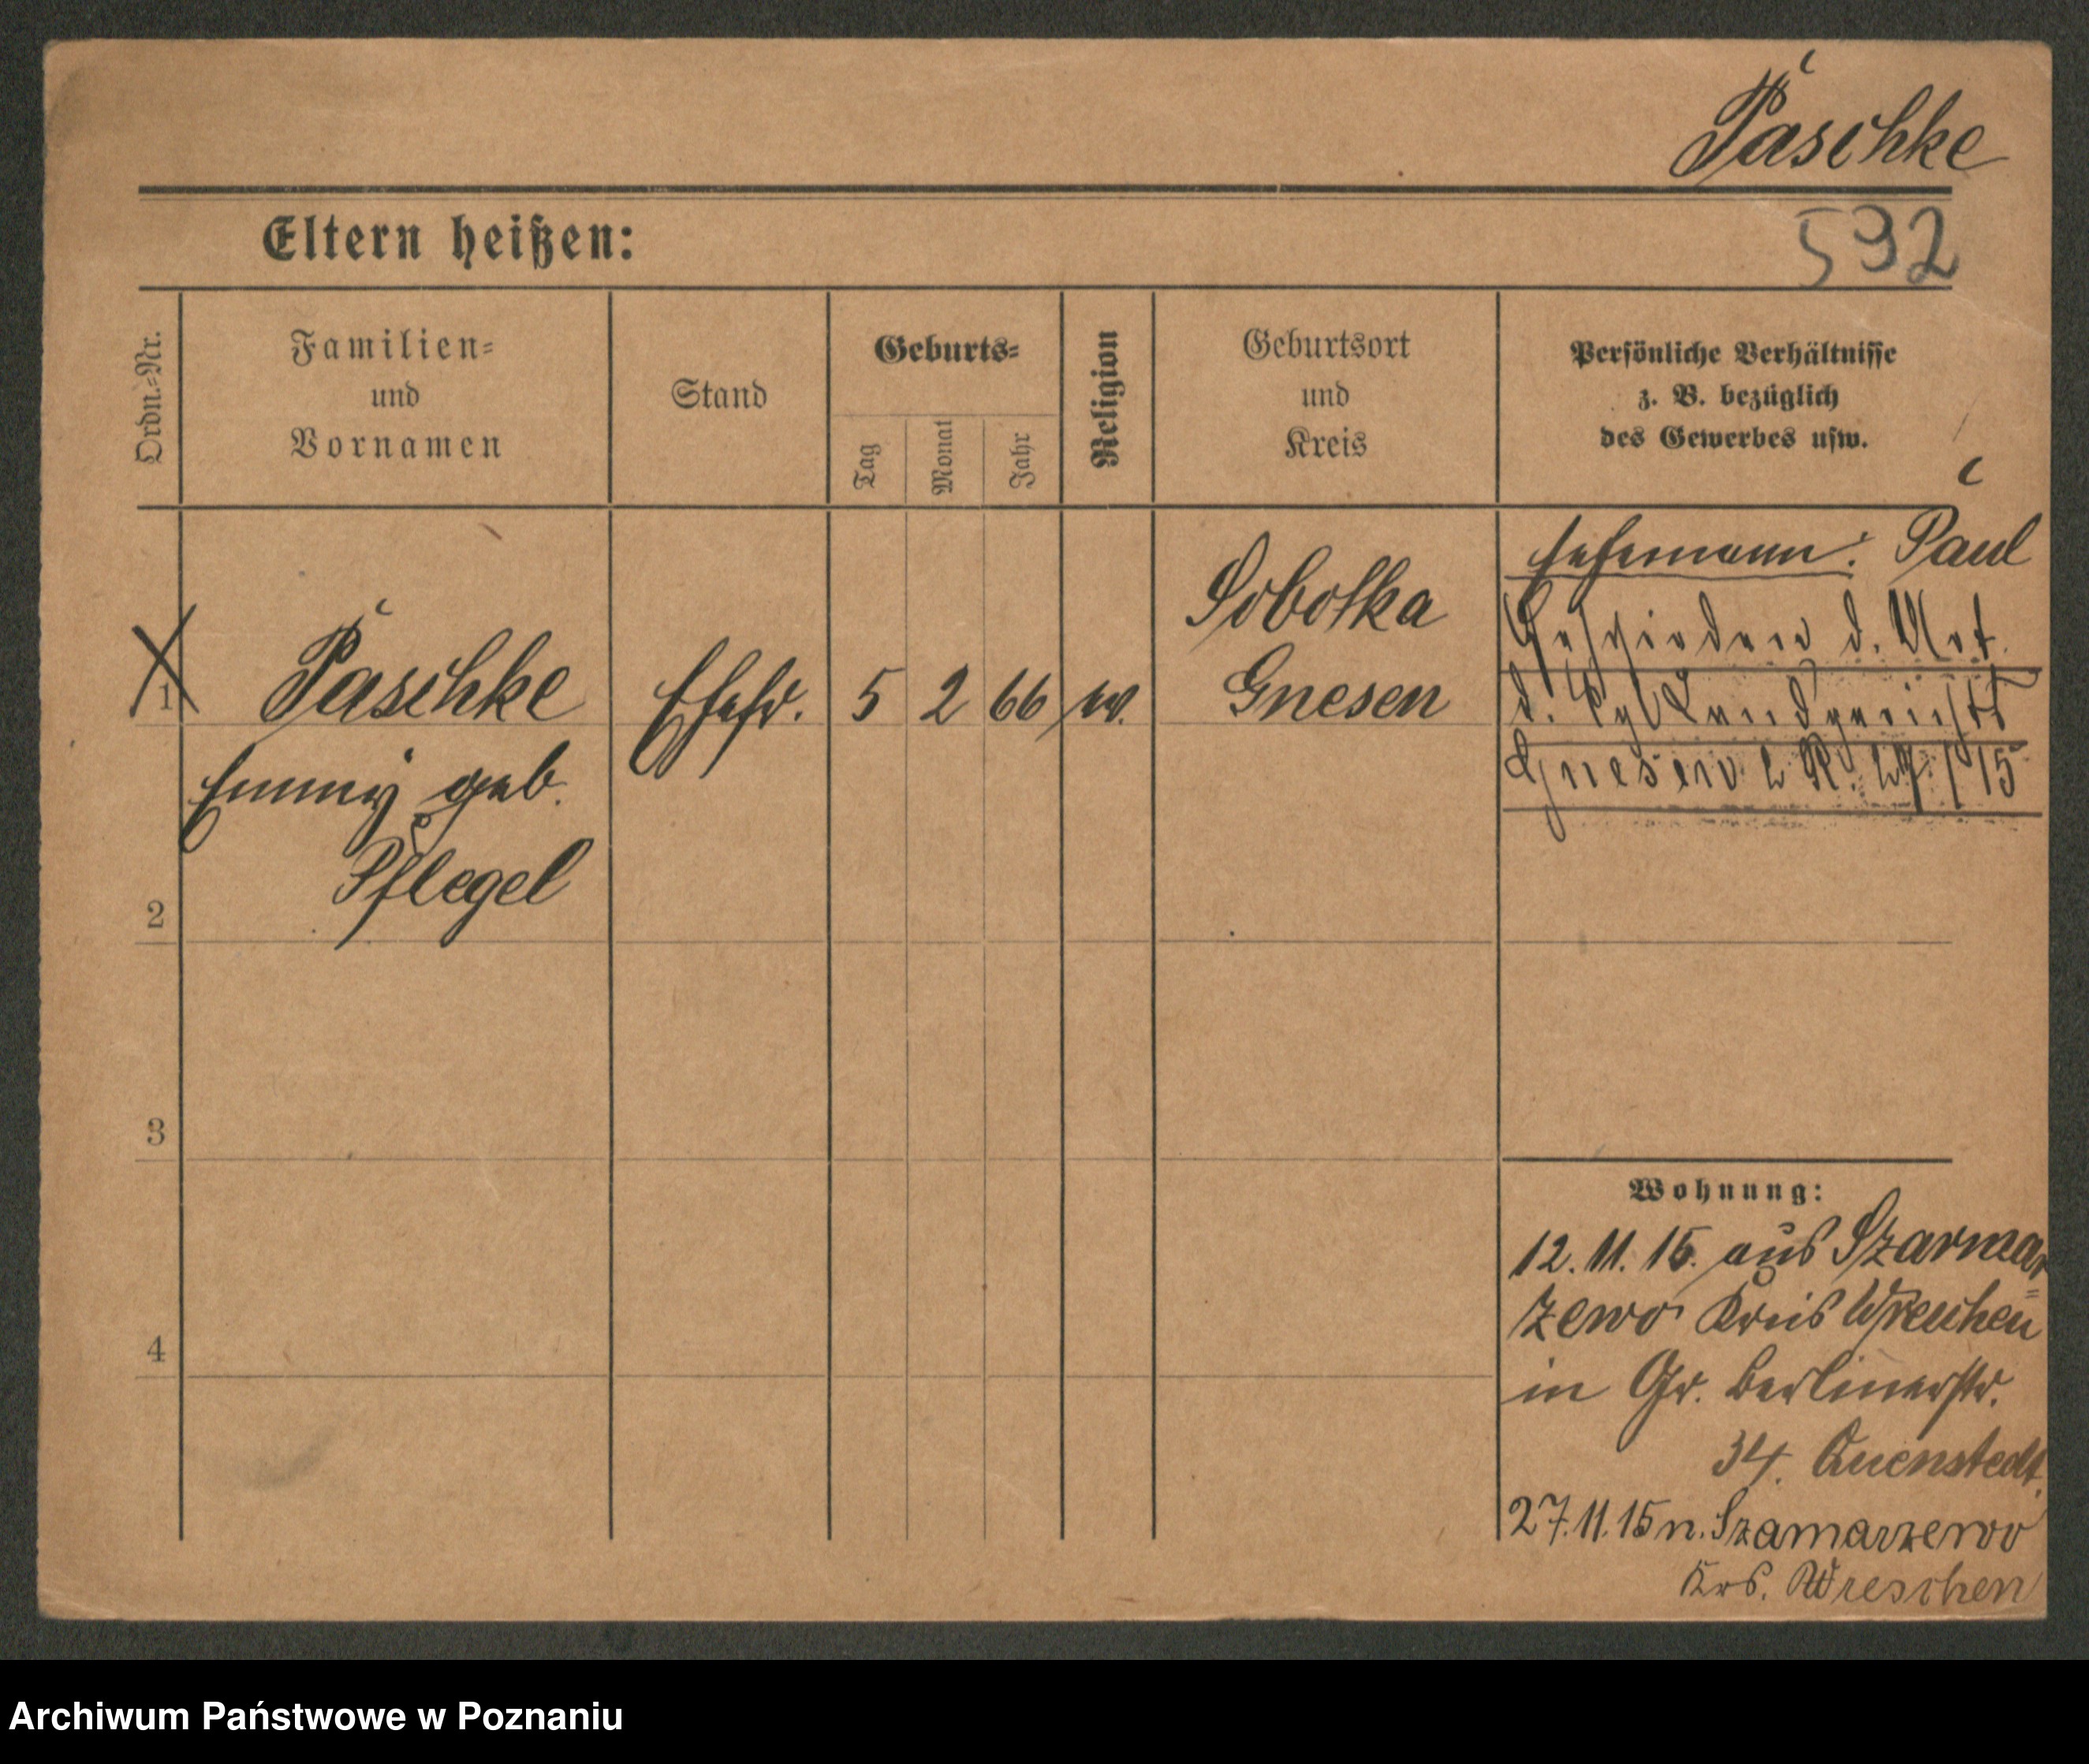 Paschke
Eltern heißen:
592
Ordn.-Nr.
Familien-
und
Vornamen
Stand
Geburts-
Tag
Monat
Jahr
Religion
Geburtsort
und
Kreis
Persönliche Verhältnisse
z. B. bezüglich
des Gewerbes usw.
1
Paschke
Emmy geb.
Pflegel
Ehefr.
5
2
66
ev.
Sobotka
Gnesen
Ehemann: Paul
Geschieden d. Urt.
d. Kgl Landgerichts
Gnesen
2
3
4
Wohnung:
12.11.15. aus Szarma
zewo Kreis Wreschen
in Gr. Berlinerstr.
34. Quenstedt.
27.11.15 n. Szamarzewo
Krs. Wreschen
Archiwum Państwowe w Poznaniu